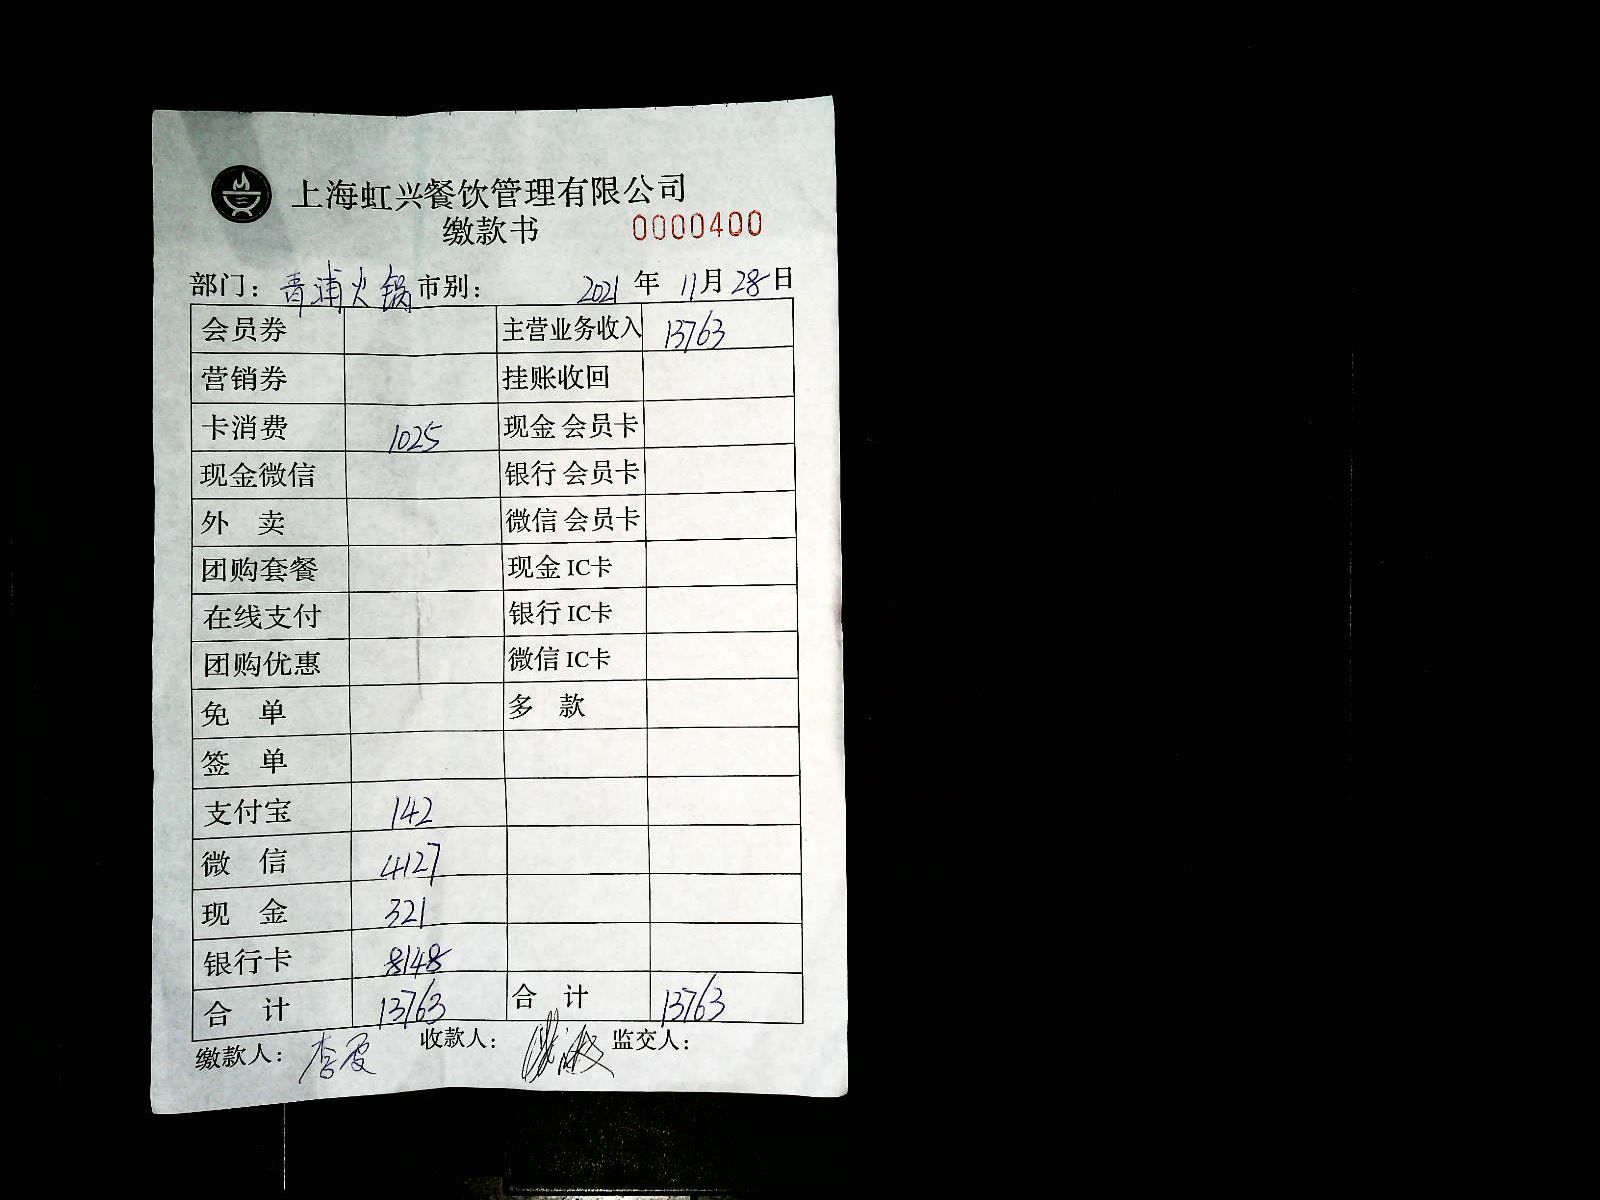 上海虹兴餐饮管理有限公司
缴款书 0000400
部门：青浦火锅 市别： 2021 年 11 月 28 日
会员券 主营业务收入 13763
营销券 挂账收回
卡消费 1025 现金 会员卡
现金微信 银行 会员卡
外 卖 微信 会员卡
团购套餐 现金 IC卡
在线支付 银行 IC卡
团购优惠 微信 IC卡
免 单 多 款
签 单
支付宝 142
微 信 4127
现 金 321
银行卡 8148
合 计 13763 合 计 13763
缴款人： 收款人： 监交人：